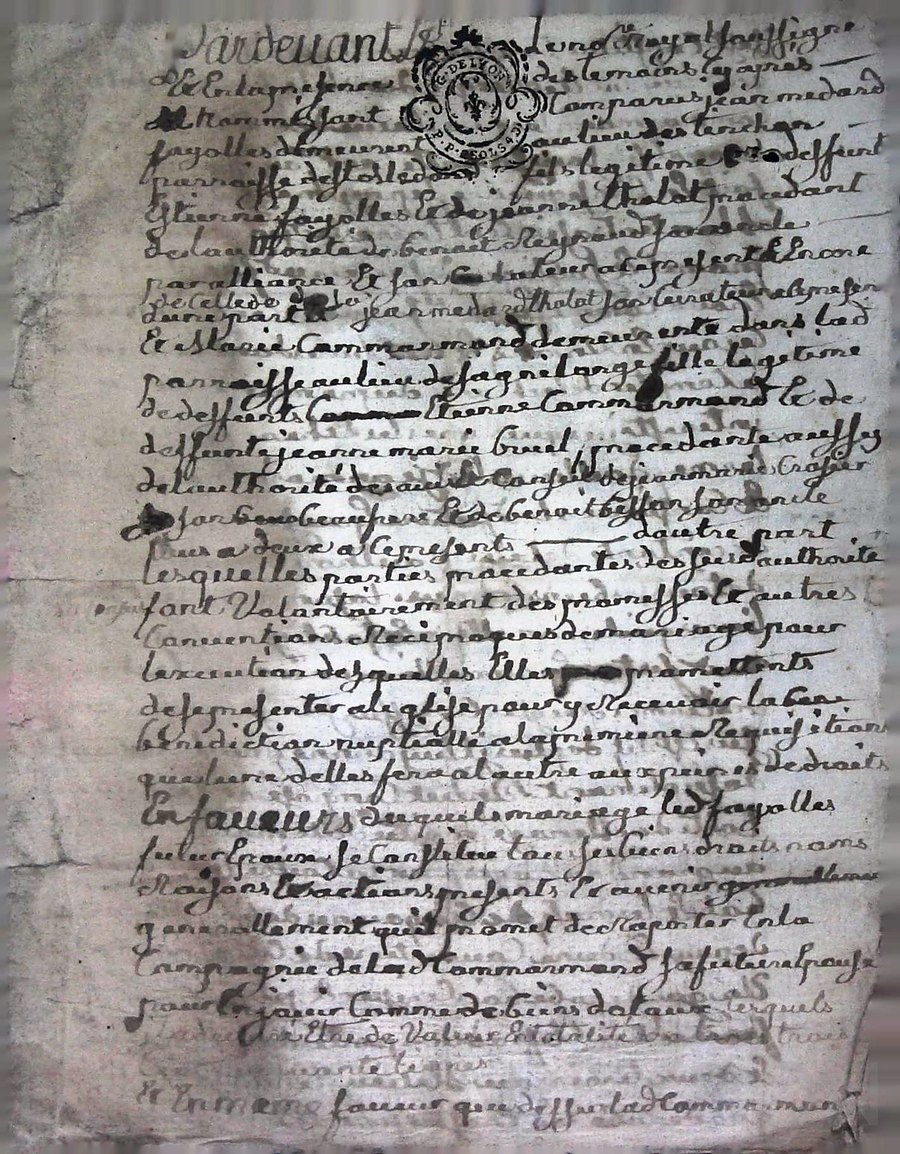 Pardevant le not. Royal soussigné
Et En la presence des temoins cy apres
nommés sont Comparus jean medard
fayolles demeurant au lieu des
parroisse de fils legitime deffunt
Estienne fayolles Et de jeanne tholot procedant
de lauthorité de benoit Reynaud son oncle
par alliance Et son Curateur a ce present Et Encore
de celle de jean medard tholot son Curateur a ce presen
dune part
Et Marie Commarmond demeurente dans lad
parroisse au lieu de fagnilonge fille legitime
de deffunts Etienne Commarmond Et de
deffunte jeanne marie bruel, procedante aussy
de lauthorité de avis et Conseil de jean marie Crosier
son beaufrere Et de benoit besson son oncle
tous a deux a ce presents dautre part
lesquelles parties procedantes des susd authorité
font Volontairement des promesses Et autres
Conventions Reciproques de mariage pour
lexecution desquelles Elles promettents
de se presenter a leglise pour y Recevoir la ben
benediction nuptialle a la premiere Requisition
que lune delles fera a lautre aux peines de droits
En faveurs duquel mariage led fayolles
futur Epoux se Constitue tous ses biens droits noms
Raisons Et actions presents Et avenir
generallement quil promet de Raporter En la
Compagnie de lad Commarmond sa future Epouse
pour En jouir Comme de biens dotaux lesquels
Etre de Valeur En totalité
Cinquante livres
Et En meme faveur que dessus lad Commarmond
G. DE LYON
P. P. 2 SOLS 4 D.